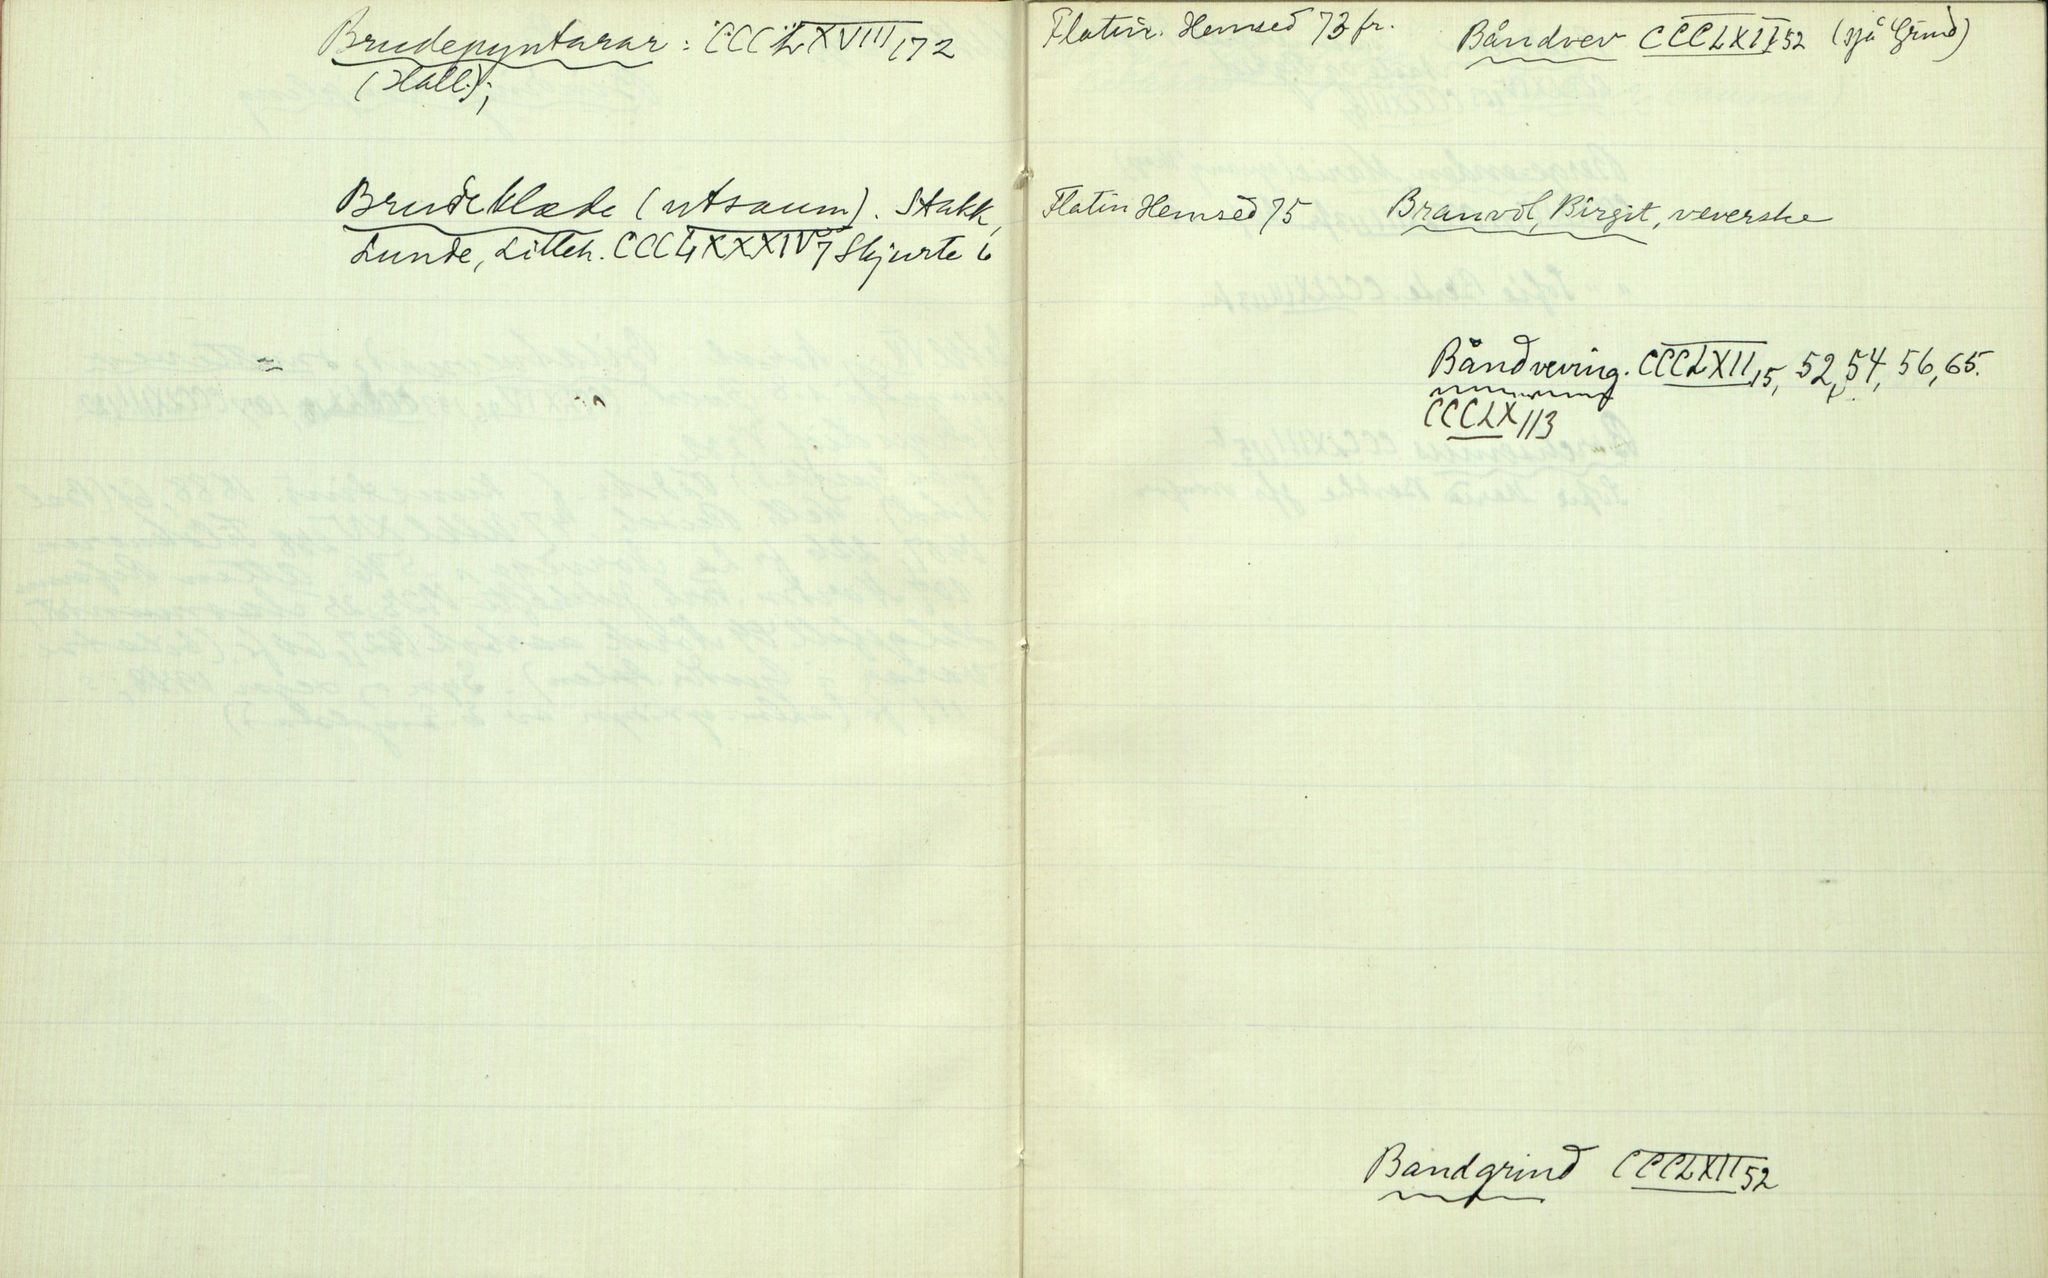 Brudepyntarar: CCCLXVIII 172
(Hall.);
Brudeklæde (utsaum). Stakk,
Lunde, Litleh. CCCLXXXIV 7 Skjurte 6
Flatin. Hemsed 73 fr.
Båndvev CCCLXII 52 (sjå Grind)
Flatin Hemsed 75
Branvol, Birgit, veverske
Båndveving. CCCLXII 15, 52, 54, 56, 65.
CCCLX 113
Bandgrind CCCLXII 52